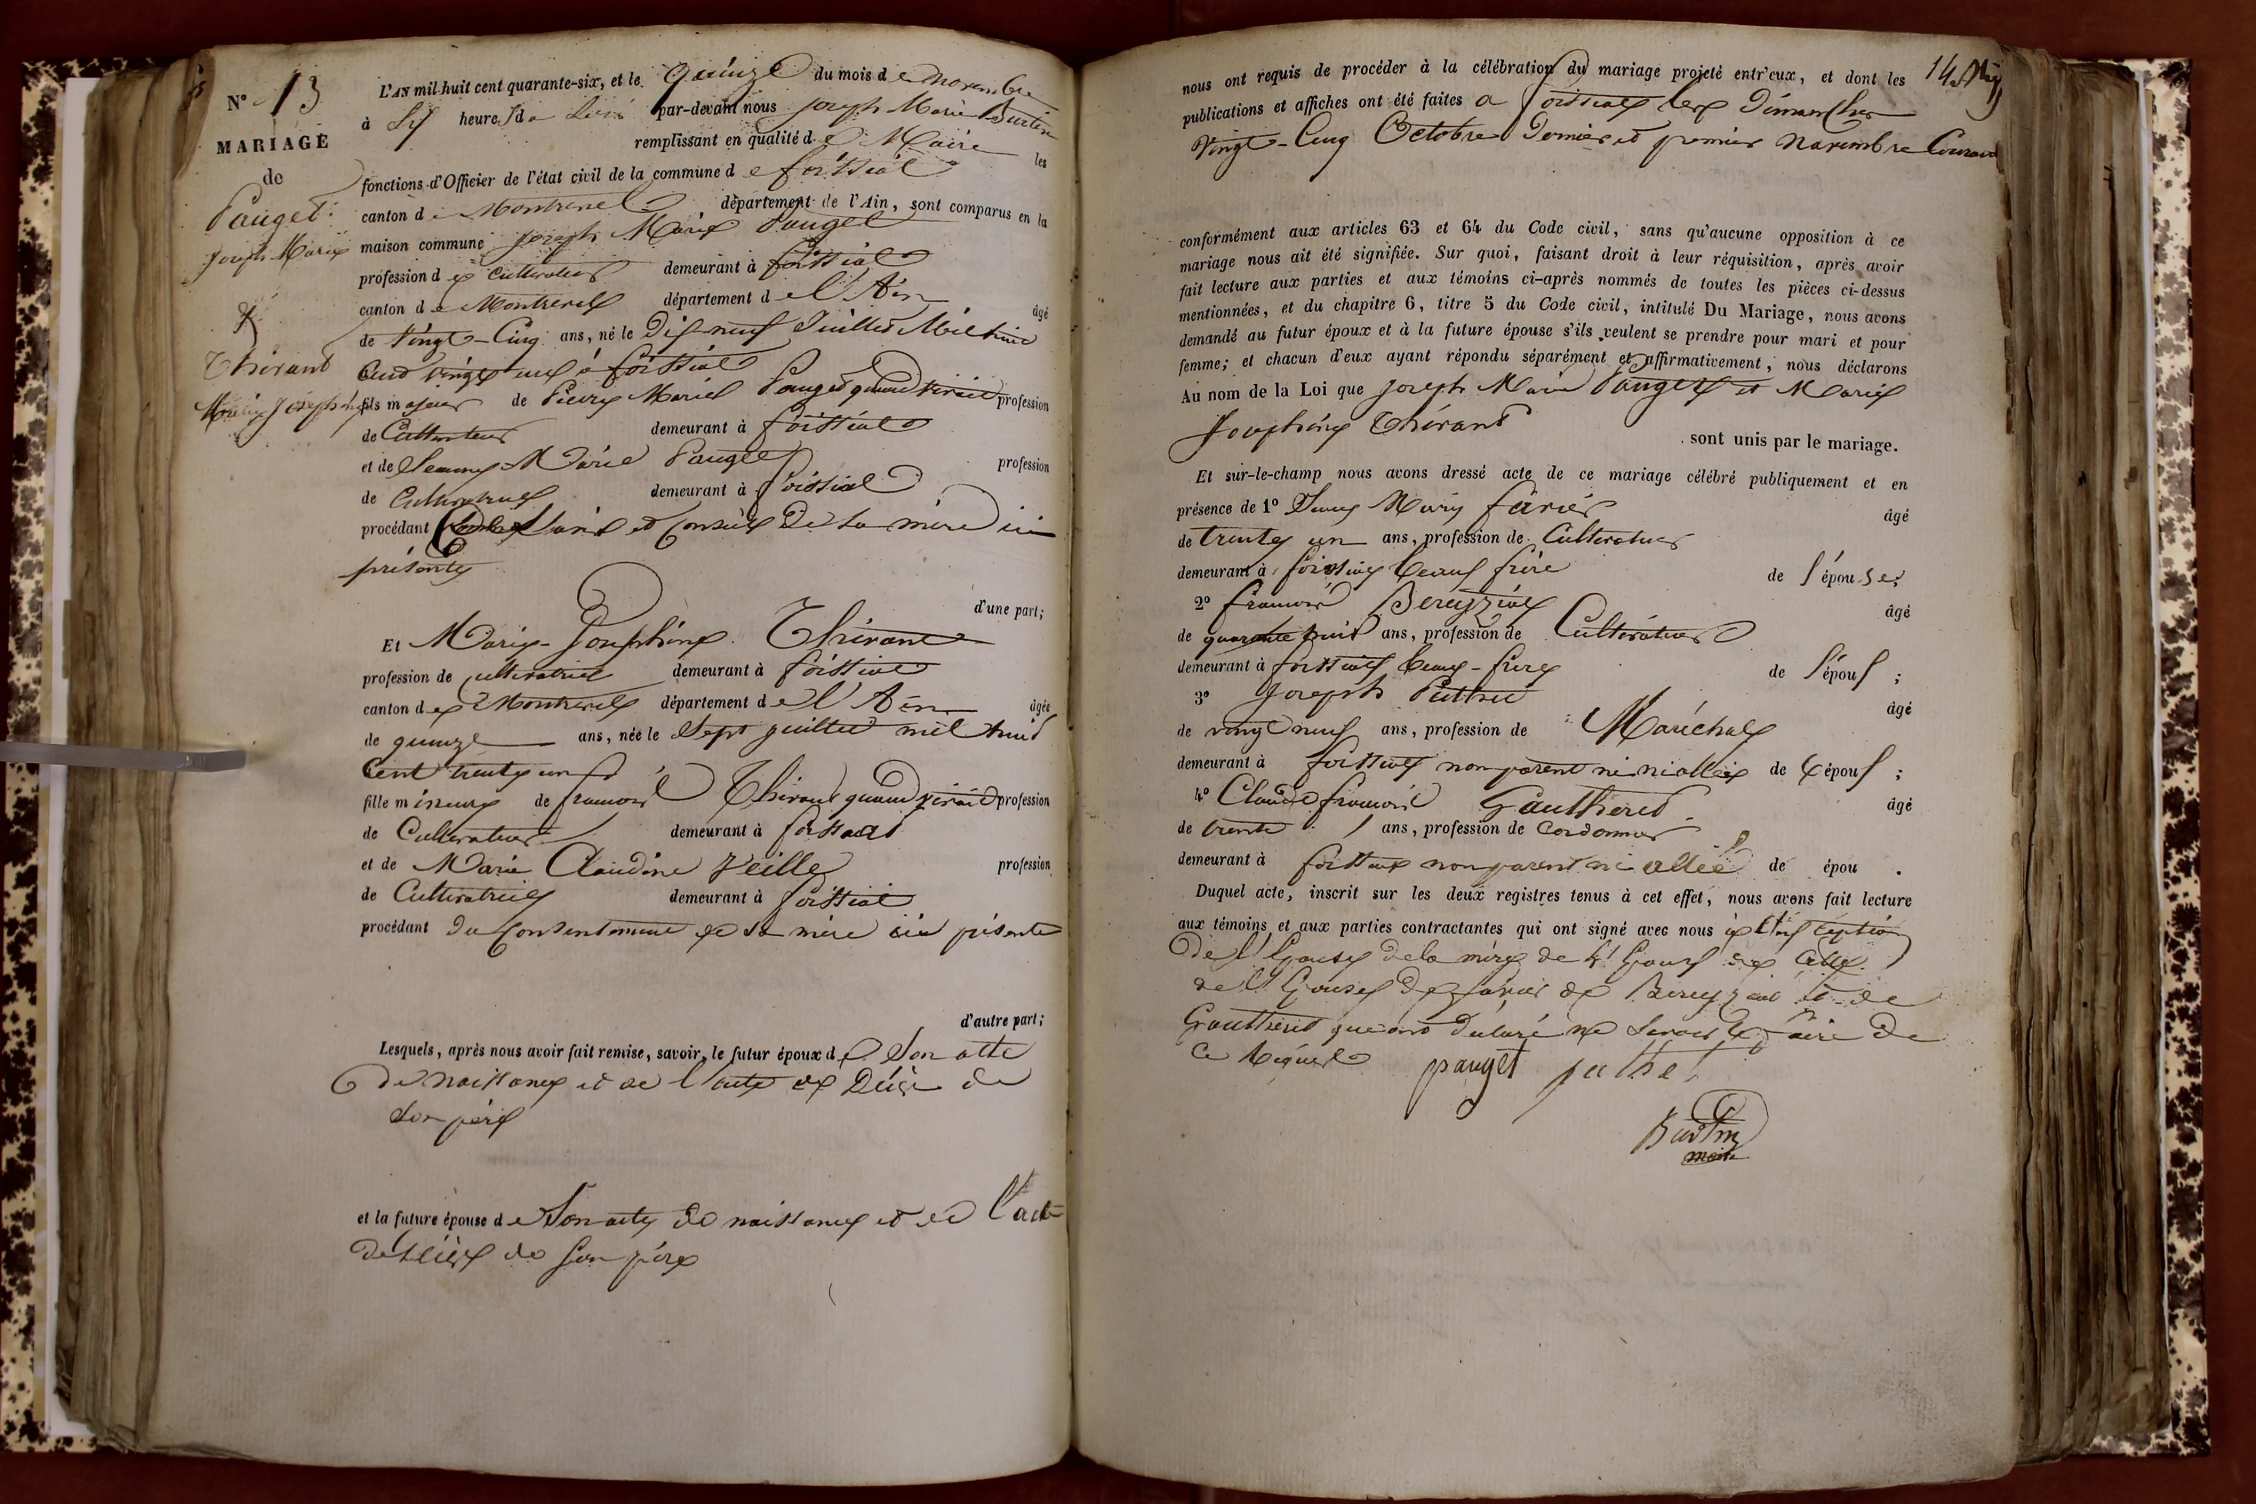 N° 13
MARIAGE
de
Pauget
Joseph Marie
&
Thirant
Marie Josephine
L'AN mil huit cent quarante-six, et le quinze du mois de novembre
à six heures du soir par-devant nous Joseph Marie Burtin
remplissant en qualité de Maire les
fonctions d'Officier de l'état civil de la commune de foissiat
canton de Montrevel département de l'Ain, sont comparus en la
maison commune Joseph Marie Pauget
profession de cultivateur demeurant à foissiat
canton de Montrevel département de l'Ain âgé
de vingt-cinq ans, né le dix neuf Juillet mil huit
cent vingt un à foissiat
fils majeur de Pierre Marie Pauget quand vivait profession
de Cultivateur demeurant à foissiat
et de Jeanne Marie Pauget profession
de Cultivatrice demeurant à foissiat
procédant de l'avis et Conseil de sa mère ici
présente
d'une part;
Et Marie-Josephine Thirant
profession de cultivatrice demeurant à foissiat
canton de Montrevel département de l'Ain âgée
de quinze ans, née le sept juillet mil huit
cent trente un
fille mineure de francois Thirant quand vivait profession
de Cultivateur demeurant à foissiat
et de Marie Claudine Veille profession
de Cultivatrice demeurant à foissiat
procédant du Consentement de sa mère ici présente
d'autre part;
Lesquels, après nous avoir fait remise, savoir, le futur époux de Son acte
de naissance et de l'acte de Décès de
son père
et la future épouse de Son acte de naissance et de l'acte
de décès de son père
14
nous ont requis de procéder à la célébration du mariage projeté entr'eux, et dont les
publications et affiches ont été faites a foissiat les dimanches
Vingt-Cinq Octobre dernier et premier novembre Courant
conformément aux articles 63 et 64 du Code civil, sans qu'aucune opposition à ce
mariage nous ait été signifiée. Sur quoi, faisant droit à leur réquisition, après avoir
fait lecture aux parties et aux témoins ci-après nommés de toutes les pièces ci-dessus
mentionnées, et du chapitre 6, titre 5 du Code civil, intitulé Du Mariage, nous avons
demandé au futur époux et à la future épouse s'ils veulent se prendre pour mari et pour
femme; et chacun d'eux ayant répondu séparément et affirmativement, nous déclarons
Au nom de la Loi que Joseph Marie Pauget et Marie
Josephine Thirant sont unis par le mariage.
Et sur-le-champ nous avons dressé acte de ce mariage célébré publiquement et en
présence de 1° Marie favier âgé
de trente un ans, profession de Cultivateur
demeurant à foissiat beau frère de l'épouse;
2° francois Bereyziat âgé
de quarante huit ans, profession de Cultivateur
demeurant à foissiat beau-frère de l'époux;
3° Joseph Puthet âgé
de vingt neuf ans, profession de Maréchal
demeurant à foissiat non parent ni allié de l'époux;
4° Claude francois Gautheret âgé
de trente ans, profession de cordonnier
demeurant à foissiat non parent ni allié de épou .
Duquel acte, inscrit sur les deux registres tenus à cet effet, nous avons fait lecture
aux témoins et aux parties contractantes qui ont signé avec nous à l'exception
de l'Epouse de la mère de l'Epoux de celle
de l'Epouse de favier de Bereyziat et de
Gautheret qui ont déclaré ne savoir le faire de
ce requis
pauget puthet
Burtin
maire